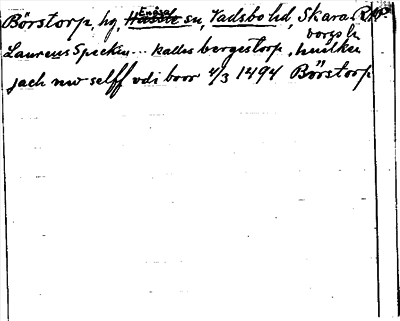 Börstorp, hg, Hassle sn, Vadsbo hd, Skarab
Laurens Specken... kallas bergestorp, huilken
jach nw selff vdi boor 4/3 1494 Börstorp